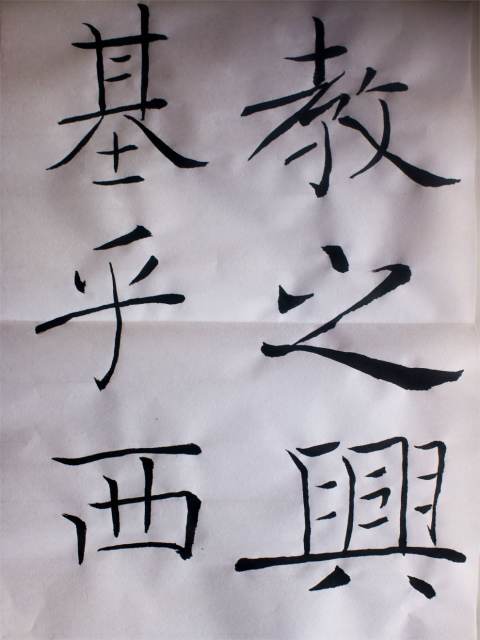 教之興
基乎西